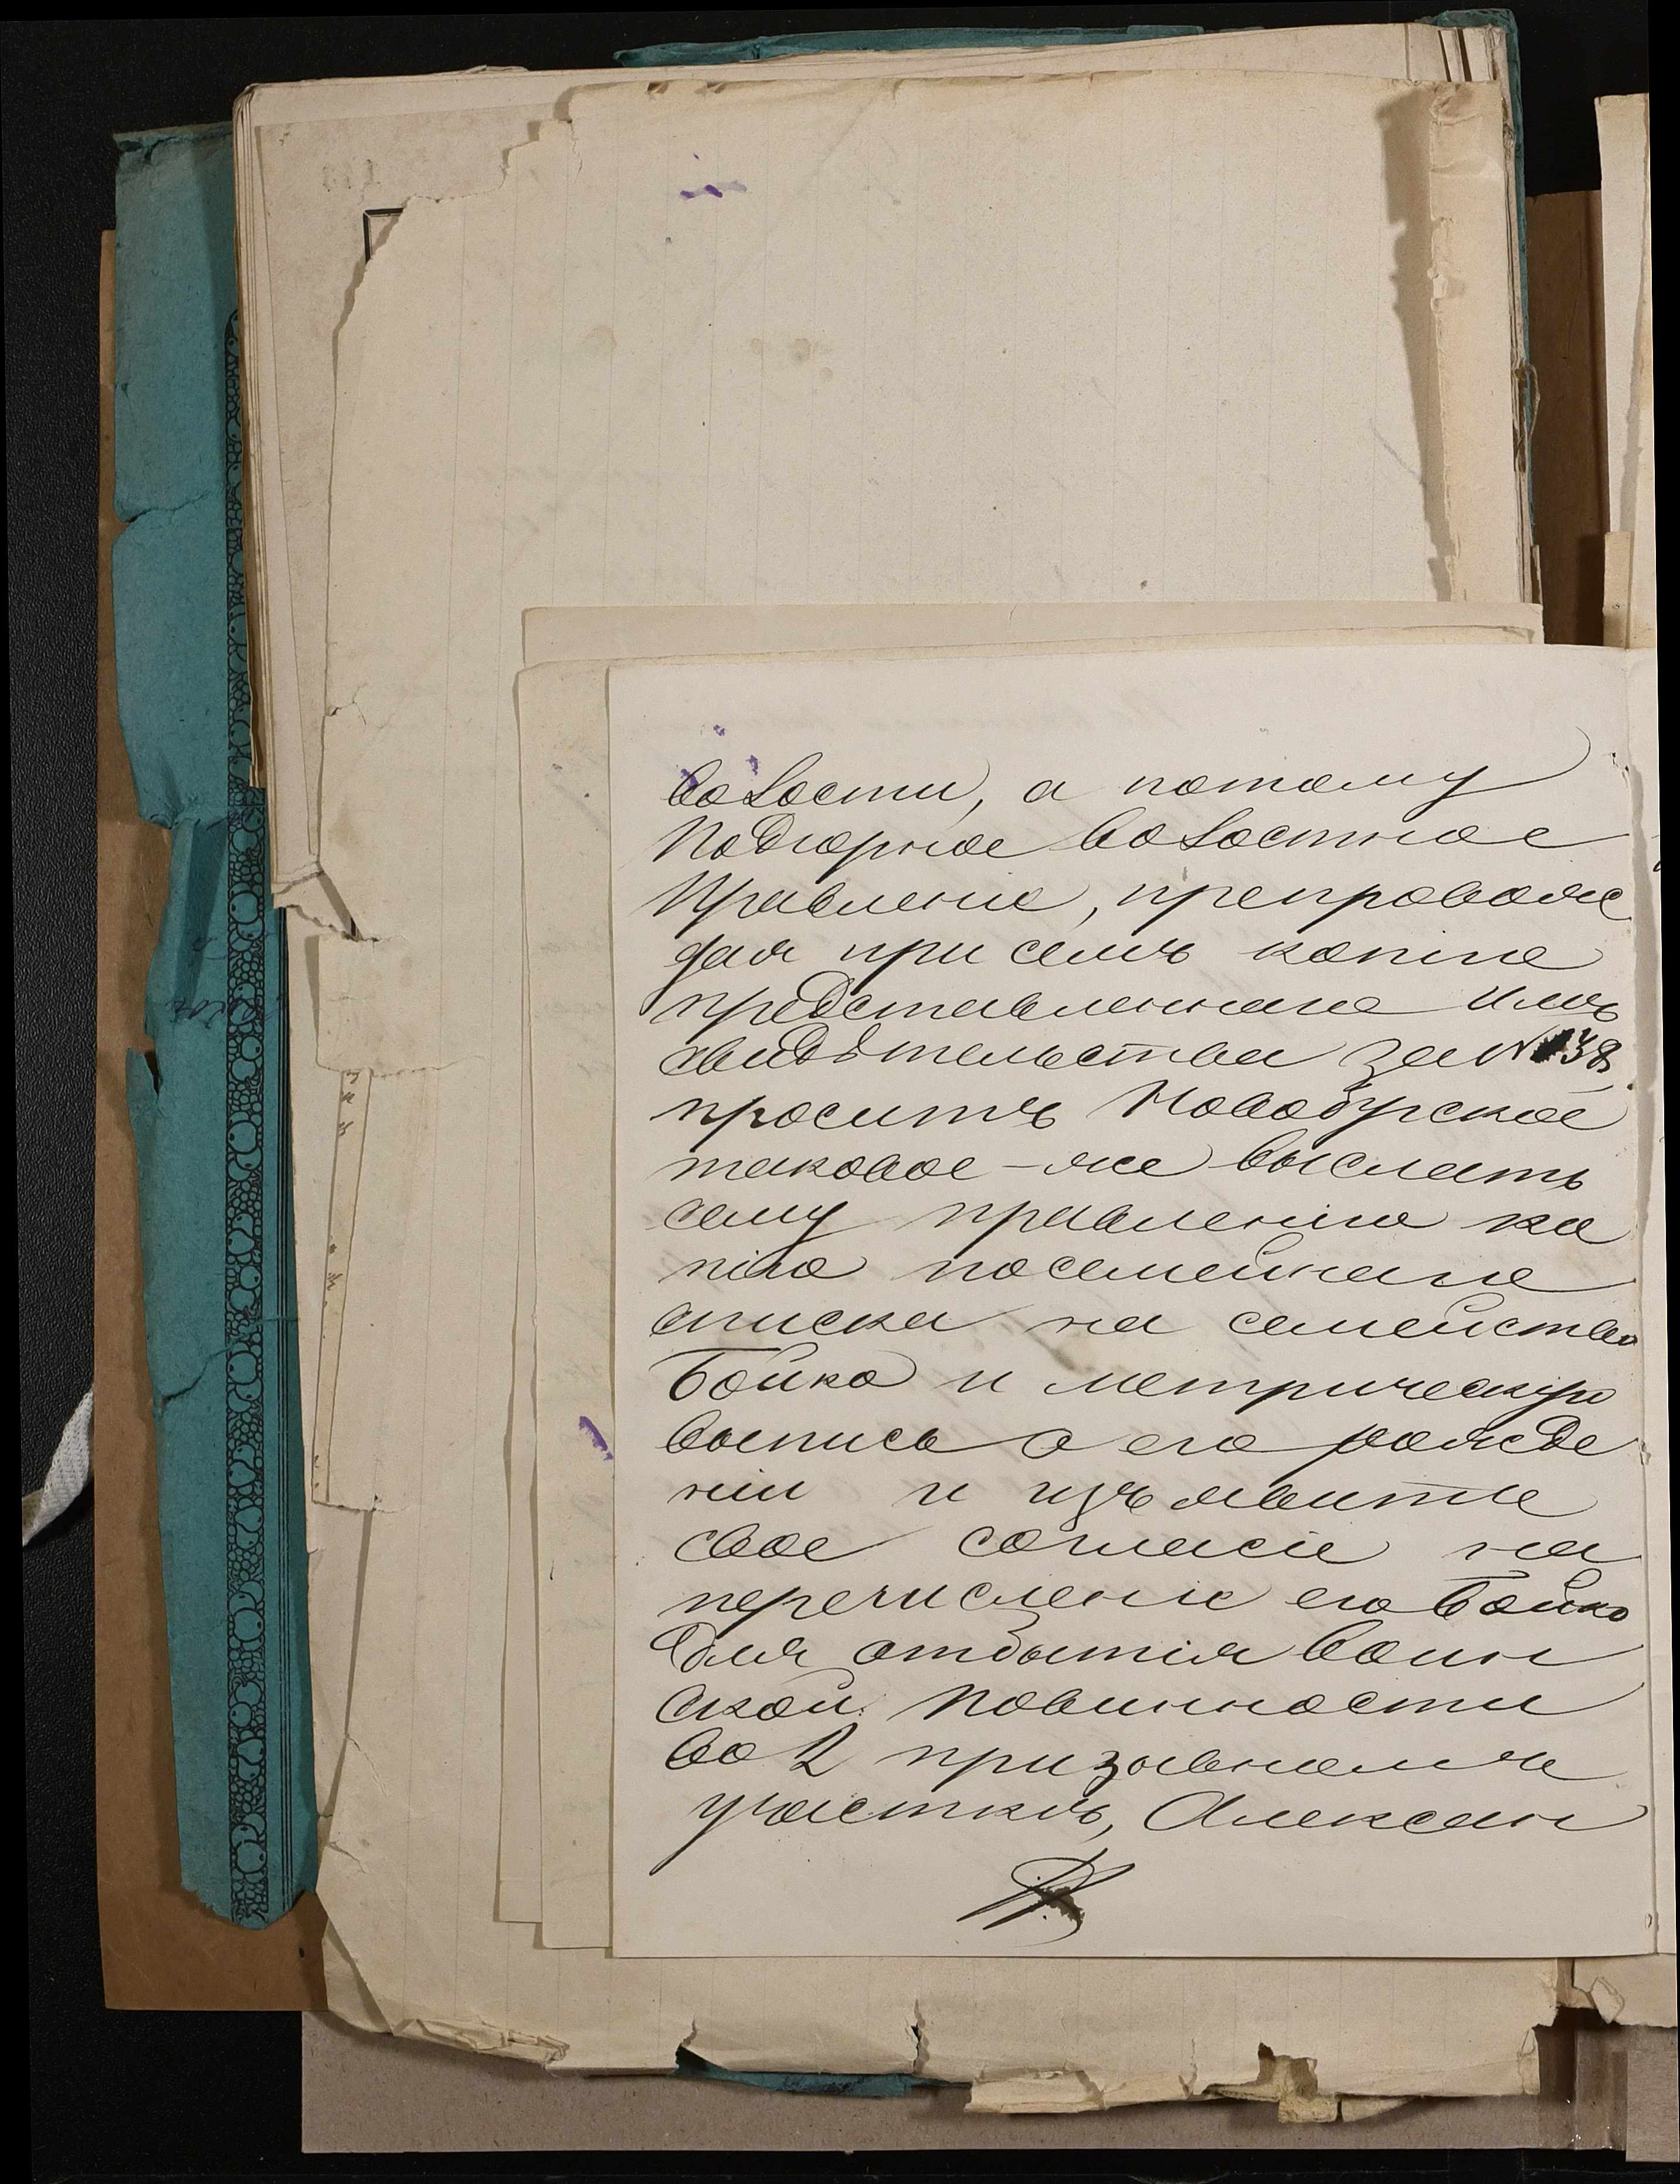 волости, а потому
Подгорное волостное
Правленіе, препровож
дая при семъ копіе
представленнаго имъ
свидѣтельства за №38,
проситъ Новобурское
таковое-же выслать
сему правленію ко
пію посемейнаго
списка на семейство
Бойко и метрическую
выпись о его рожде
ніи и изъявите
свое согласіе на
перечисленіе его Бойко
для отбытія воин
ской повинности
во 2 призывномъ
участкѣ, Алексан